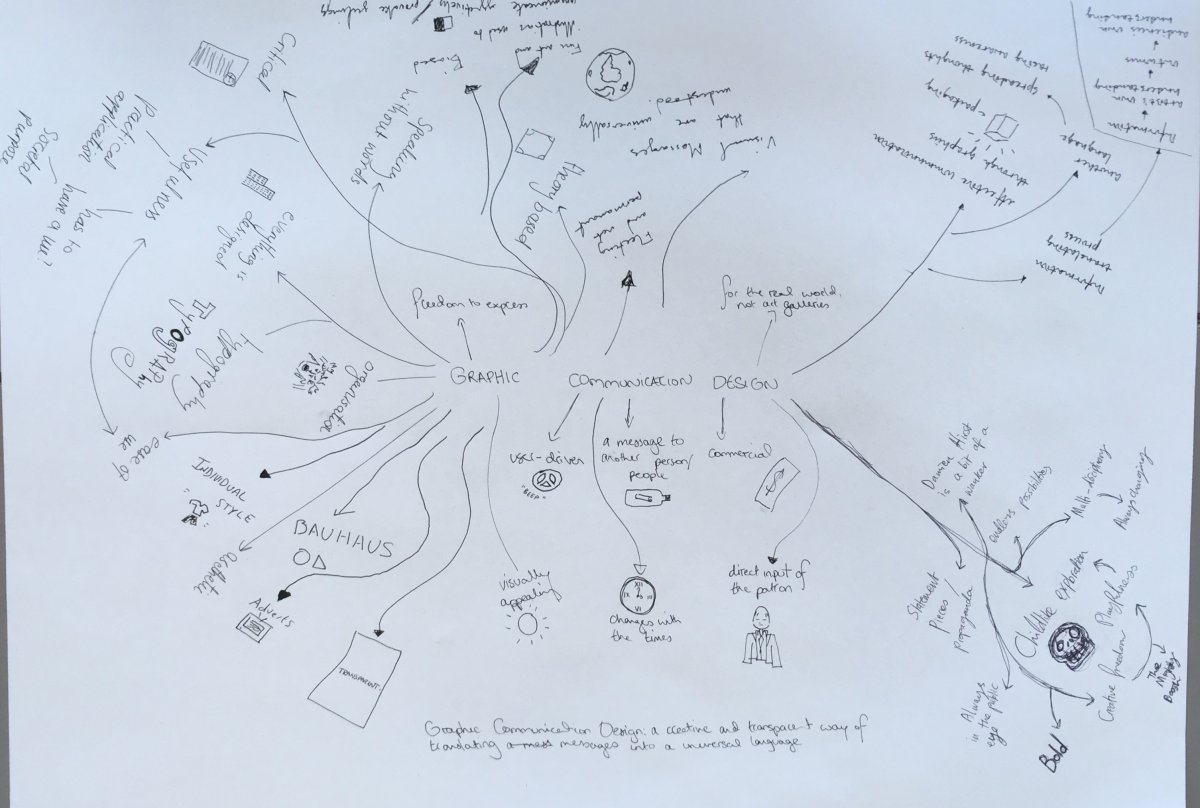 GRAPHIC COMMUNICATION DESIGN
freedom to express
for the real world,
not art galleries
Critical
Practical
application
Societal
purpose
Usefulness
has to
have a use?
everything is
designed
typography
TYPOGRAPHy
organisation
ease of
use
INDIVIDUAL
STYLE
aesthetic
BAUHAUS
Adverts
TRANSPARENT
visually
appealing
Speaking
without words
Biased
Fine art and
illustration used to
communicate effectively / provoke feelings
theory based
Fleeting
and not
permanent
Visual Messages
that are universally
understood.
user-driven
"BEEP"
a message to
another person/
people
XII
III
VI
IX
changes with
the times
commercial
direct input of
the patron
effective communication
through graphics
packaging
spreading thoughts
raising awareness
another
language
information
translating
process
Information
artist's own
understanding
outcome
audiences own
understanding
Damien Hirst
is a bit of a
wanker
endless possibilities
Multi-disciplinary
Always changing
Statement
Pieces/
Propaganda
Childlike exploration
Playfulness
Creative freedom
The
Mighty
Boosh
Always
in the public
eye
Bold
Graphic Communication Design: a creative and transparent way of
translating a mass messages into a universal language